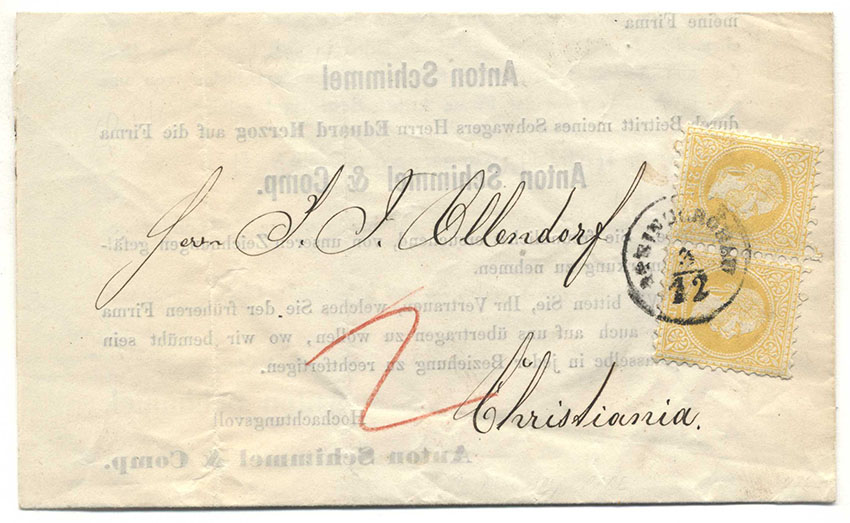 meine Firma
Anton Schimmel
durch Beitritt meines Schwagers Herrn Eduard Herzog auf die Firma
Anton Schimmel & Comp.
Herrn J. J. Ollendorf
Sie von unseren Zeichnungen gefäl-
zu nehmen.
3/12
bitten Sie, Ihr Vertrauen, welches Sie der früheren Firma
auch auf uns übertragen zu wollen, wo wir bemüht sein
dasselbe in jeder Beziehung zu rechtfertigen.
2
Christiania.
Hochachtungsvoll
Anton Schimmel & Comp.